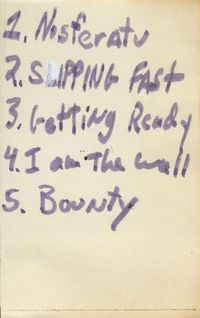 1. Nosferatu
2. SLIPPING FAST
3. Getting Ready
4. I am The wall
5. Bounty